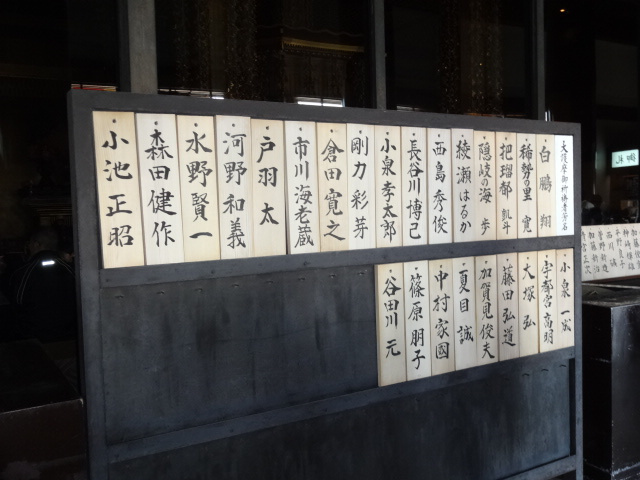 大護摩御祈祷者芳名
白鵬 翔
稀勢の里 寛
把瑠都 凱斗
隠岐の海 歩
綾瀬はるか
西島 秀俊
長谷川 博己
小泉 孝太郎
剛力 彩芽
倉田 寛之
市川 海老蔵
戸羽 太
河野 和義
水野 賢一
森田 健作
小池 正昭
小泉 一成
宇都宮 高明
大塚 弘
藤田 弘道
加賀見 俊夫
夏目 誠
中村 家國
篠原 朋子
谷田川 元